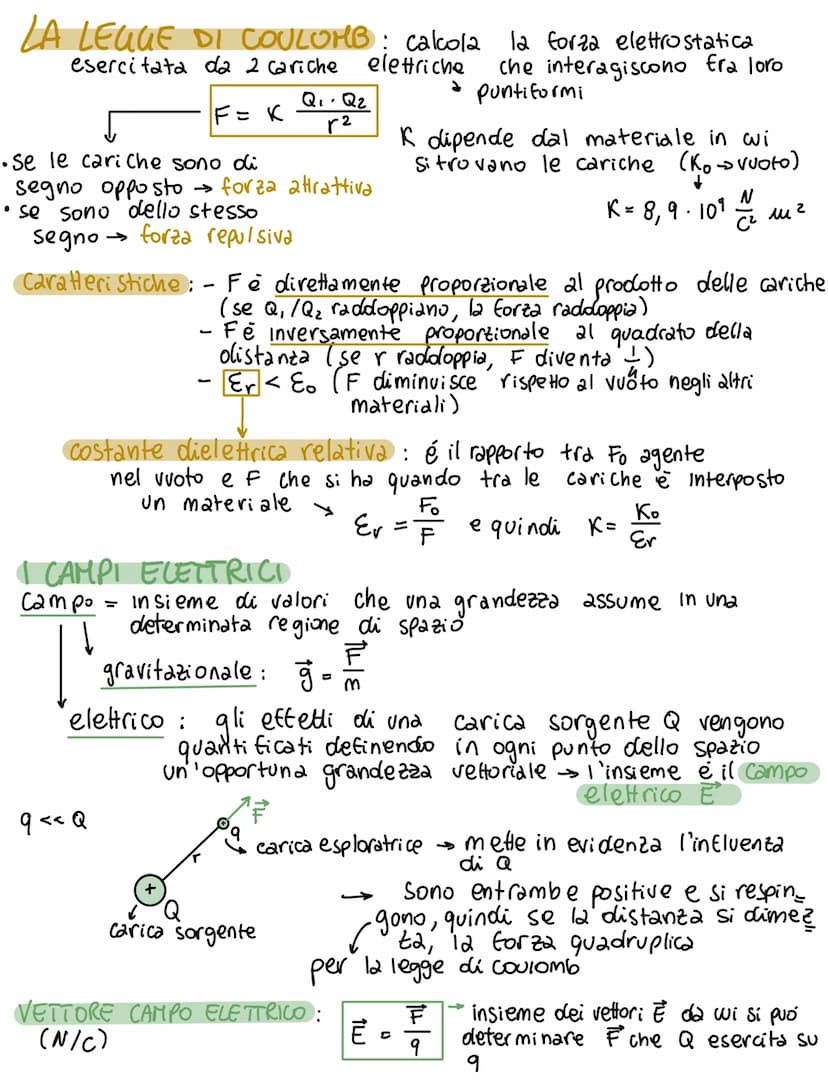 LA LEGGE DI COULOMB : calcola la forza elettrostatica
esercitata da 2 cariche elettriche che interagiscono tra loro
↳ puntiformi
F = K Q₁ · Q₂ / r²
K dipende dal materiale in cui
si trovano le cariche (K₀ → vuoto)
K = 8,9 · 10⁹ N/C² m²
• se le cariche sono di
segno opposto → forza attrattiva
• se sono dello stesso
segno → forza repulsiva
Caratteristiche : - F è direttamente proporzionale al prodotto delle cariche
(se Q₁/Q₂ raddoppiano, la forza raddoppia)
- F è inversamente proporzionale al quadrato della
distanza (se r raddoppia, F diventa 1/4)
- Ɛr < Ɛ₀ (F diminuisce rispetto al vuoto negli altri
materiali)
costante dielettrica relativa : é il rapporto tra F₀ agente
nel vuoto e F che si ha quando tra le cariche è interposto
un materiale → Ɛr = F₀/F e quindi K = K₀/Ɛr
I CAMPI ELETTRICI
Campo = insieme di valori che una grandezza assume in una
determinata regione di spazio
gravitazionale : g⃗ = F⃗/m
elettrico : gli effetti di una carica sorgente Q vengono
quantificati definendo in ogni punto dello spazio
un'opportuna grandezza vettoriale → l'insieme é il campo
elettrico E⃗
q << Q
F⃗
q
r
+
Q
carica sorgente
carica esploratrice → mette in evidenza l'influenza
di Q
→ sono entrambe positive e si respin=
gono, quindi se la distanza si dimez
za, la forza quadruplica
per la legge di Coulomb
VETTORE CAMPO ELETTRICO :
(N/C)
E⃗ = F⃗/q
→ insieme dei vettori E⃗ da cui si può
determinare F⃗ che Q esercita su
q